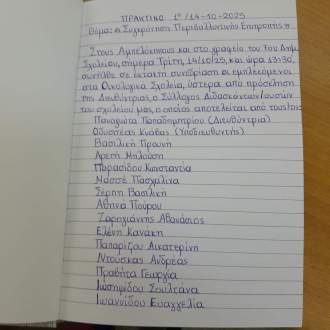 ΠΡΑΚΤΙΚΟ 1ο/14-10-2025
Θέμα: «Συγκρότηση Περιβαλλοντικής Επιτροπής»
Στους Αμπελόκηπους και στο γραφείο του 1ου Δημ.
Σχολείου, σήμερα Τρίτη, 14/10/25, και ώρα 13:30,
συνήλθε σε έκτακτη συνεδρίαση οι εμπλεκόμενοι
στα Οικολογικά Σχολεία, ύστερα από πρόσκληση
της Διευθύντριας, ο Σύλλογος Διδασκόντων/ουσών
του σχολείου μας ο οποίος αποτελείται από τους/τις:
Παναγιώτα Παπαδημητρίου (Διευθύντρια)
Οδυσσέας Κνάβας (Υποδιευθυντής)
Βασιλική Πρωινή
Αρετή Μπλούση
Παρασίδου Κωνσταντία
Νάσσε Πασχαλίνα
Σέρπη Βασιλική
Αθηνά Πούρου
Ζαρογιάννης Αθανάσιος
Ελένη Κανάκη
Παπαρίζου Αικατερίνη
Ντούσκας Ανδρέας
Πραβήτα Γεωργία
Ιωσηφίδου Σουλτάνα
Ιωαννίδου Ευαγγελία